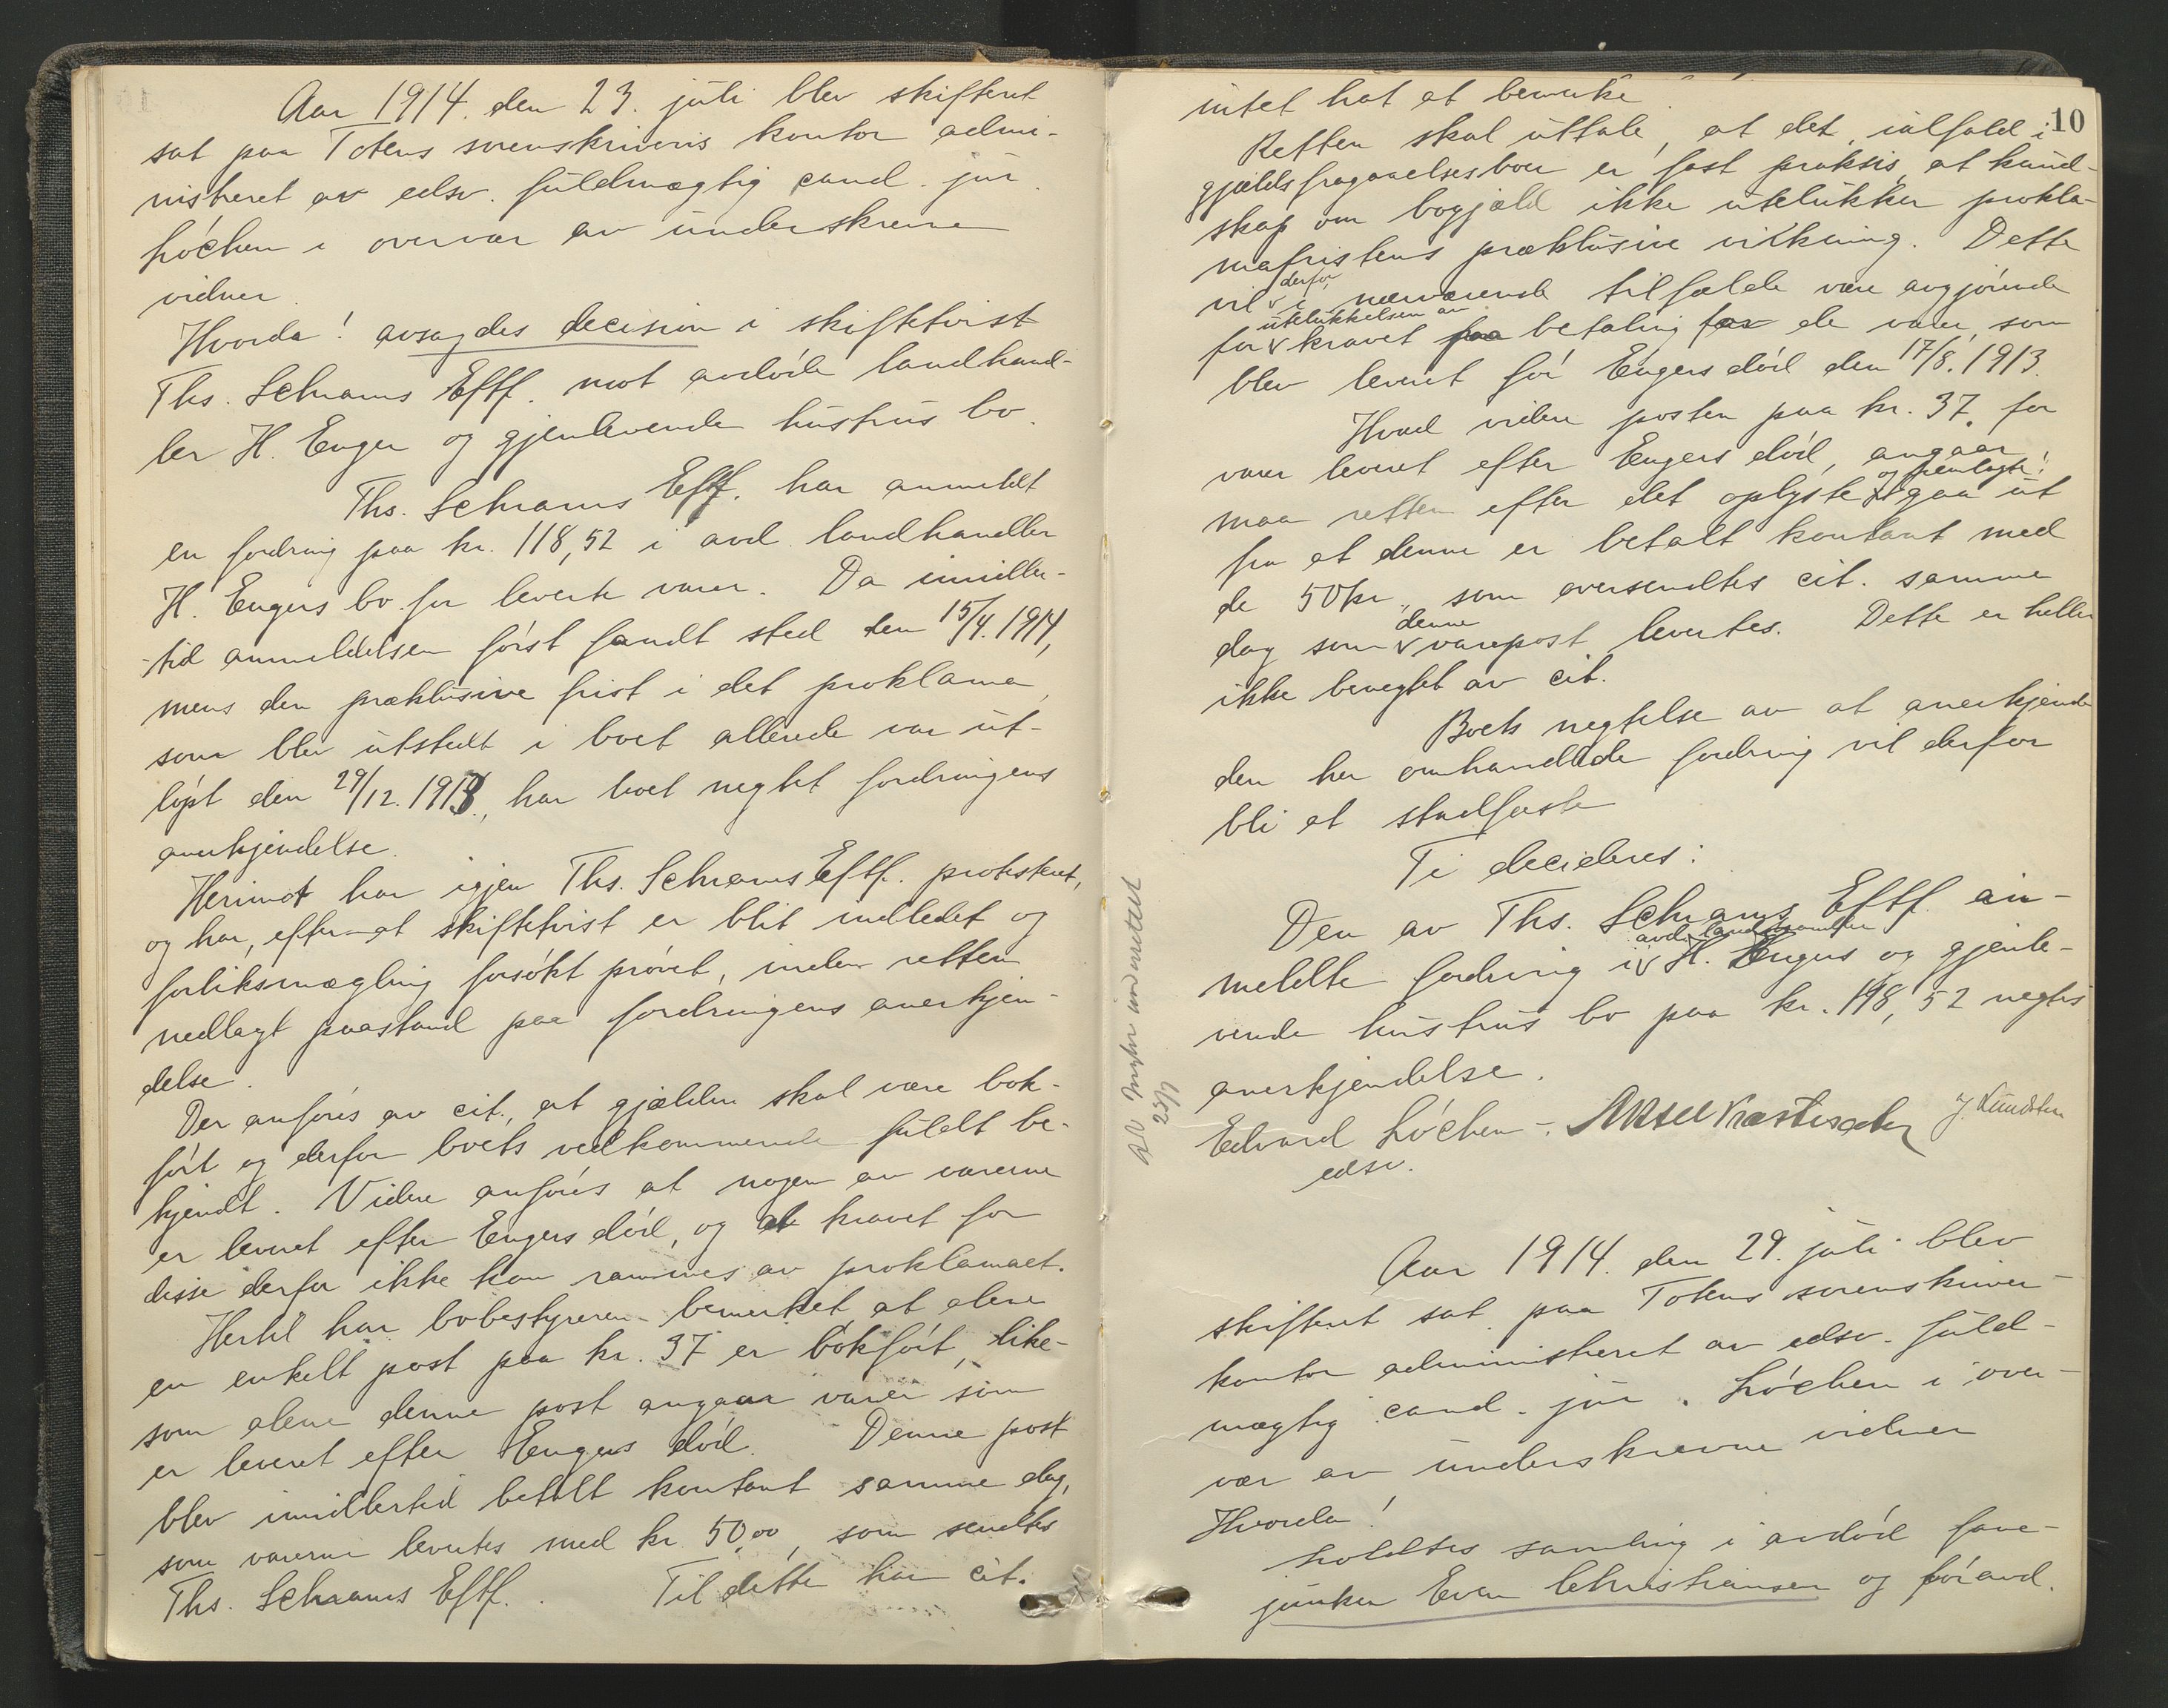 Aar 1914. den 23. juli blev skifteret
sat paa Totens sorenskriveris kontor admi-
nistreret av edsv. fuldmægtig cand. jur.
Löchen i overvær av underskrevne
vidner.
Hvorda! avsagdes decision i skiftetvist
Ths. Schrams Eftf. mot avdöde landhand-
ler H. Enger og gjenlevende hustrus bo.
Ths. Schrams Eftf. har anmeldt
en fordring paa kr. 118,52 i avd. landhandler
H. Engers bo for leverte varer. Da imidler-
tid anmeldelsen först fandt sted den 15/4. 1914,
mens den præklusive frist i det proklama,
som blev utstedt i boet allerede var ut-
löpt den 29/12. 1913., har boet negtet fordringens
anerkjendelse.
Herimot har igjen Ths. Schrams Eftf. protestert,
og har, efter at skiftetvist er blit indledet og
forliksmægling forsökt prövet, inden retten
nedlagt paastand paa fordringens anerkjen-
delse.
Der anföres av cit., at gjælden skal være bok-
fört og derfor boets vedkommende fuldt be-
kjendt. Videre anföres at nogen av varerne
er leveret efter Engers död, og at kravet for
disse derfor ikke kan rammes av proklamaet.
Hertil har bobestyreren bemerket at alene
en enkelt post paa kr. 37 er bokfört, like-
som alene denne post angaar varer som
er leveret efter Engers död. Denne post
blev imidlertid betalt kontant samme dag,
som varerne levertes med kr 50,00, som sendtes
Ths. Schrams Eftf. Til dette har cit.
10
intet hat at bemerke.
Retten skal uttale, at det, ialfald i
gjældsfragaaelsesboer er fast praksis, at kund-
skap om bogjæld ikke utelukker prokla-
mafristens præklusive virkning. Dette
derfor
vil i nærværende tilfælde være avgjörende
utelukkelsen av
for kravet paa betaling for de varer, som
blev leveret för Engers död den 17/8. 1913.
Hvad videre posten paa kr. 37. for
varer leveret efter Engers död, angaar
og fremlagte
maa retten efter det oplyste gaa ut
fra at denne er betalt kontant med
de 50 kr., som oversendtes cit. samme
denne
dag som varepost levertes. Dette er heller
ikke benegtet av cit.
Boets negtelse av at anerkjende
den her omhandlede fordring vil derfor
bli at stadfæste
Ti decideres:
Den av Ths. Schrams Eftf. an-
avd. landhandler
meldte fordring i H. Engers og gjenle-
vende hustrus bo paa kr. 118,52 negtes
anerkjendelse.
Edvard Löchen
edsv.
23/7
Aar 1914. den 29. juli blev
skifteret sat paa Totens sorenskriver-
kontor administreret av edsv. fuld-
mægtig cand. jur. Löchen i over-
vær av underskrevne vidner
Hvorda!
holdtes samling i avdöd fane-
junker Even Christiansen og för avd.